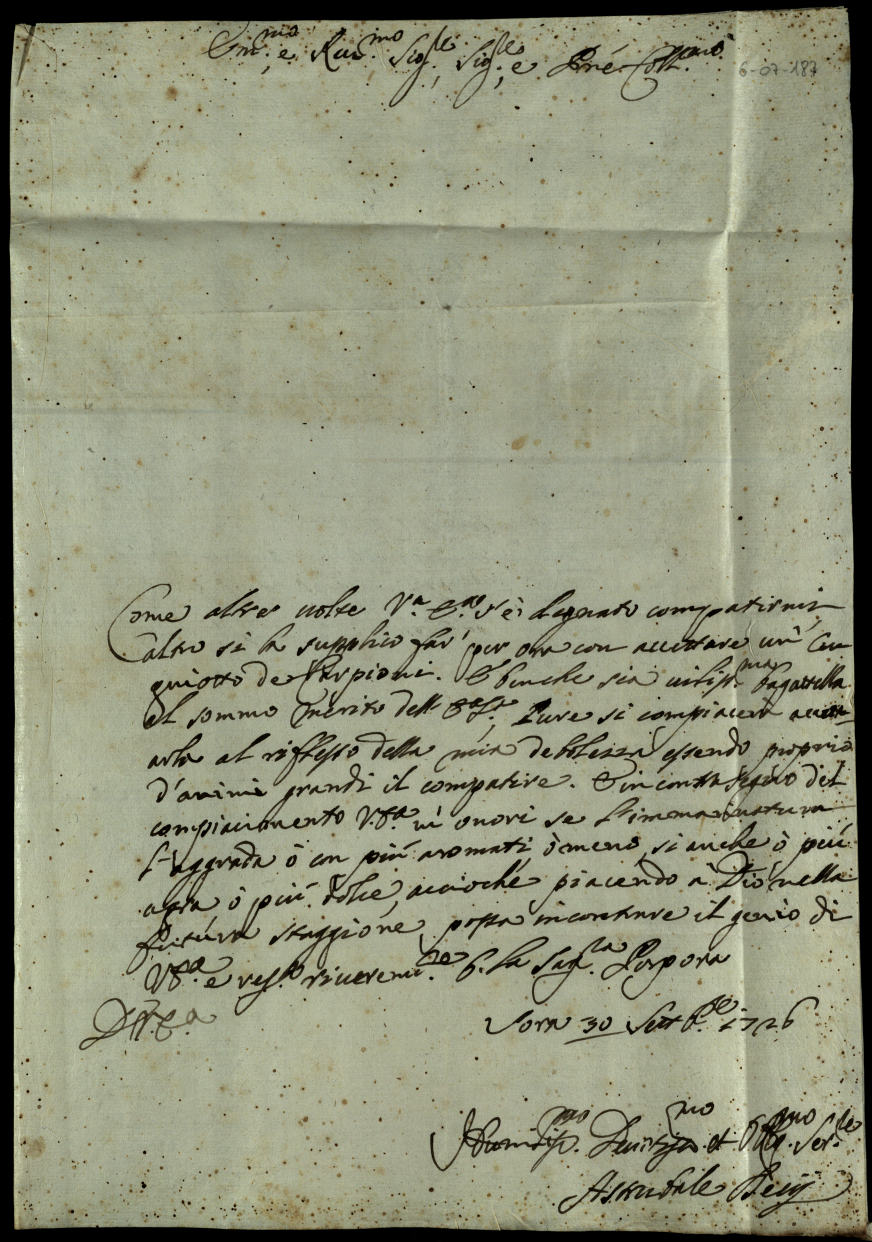 Em.mo e Reu.mo Sig.re, Sig.re e Prñe Coll.mo
6-07-187
Come altre uolte V.a E.a s'è degnato compatirmi,
altro si la supplico far' per ora con accettare un'
de Carpioni. E benche sia uiliss.ma bagattella
al sommo merito dell' E.a S.a, Pure si compiacerà
arla al riflesso della mia debolezza essendo proprio
d'animi grandi il compatire. E in contrasegno del
compiacimento V.E.a m'onori se
l'aggrada ò con più aromati ò meno, si anche ò più
agra ò più dolce, accioché piacendo à Dio nella
futura staggione possa incontrare il genio di
V.E.a e rest.o riuerem.te b. la Sag.ta Porpora
D.V.E.a
Sora 30 Sett.bre 1726
Humiliss.mo Deuotiss.mo et Obblig.mo Ser.re
Asdrubale